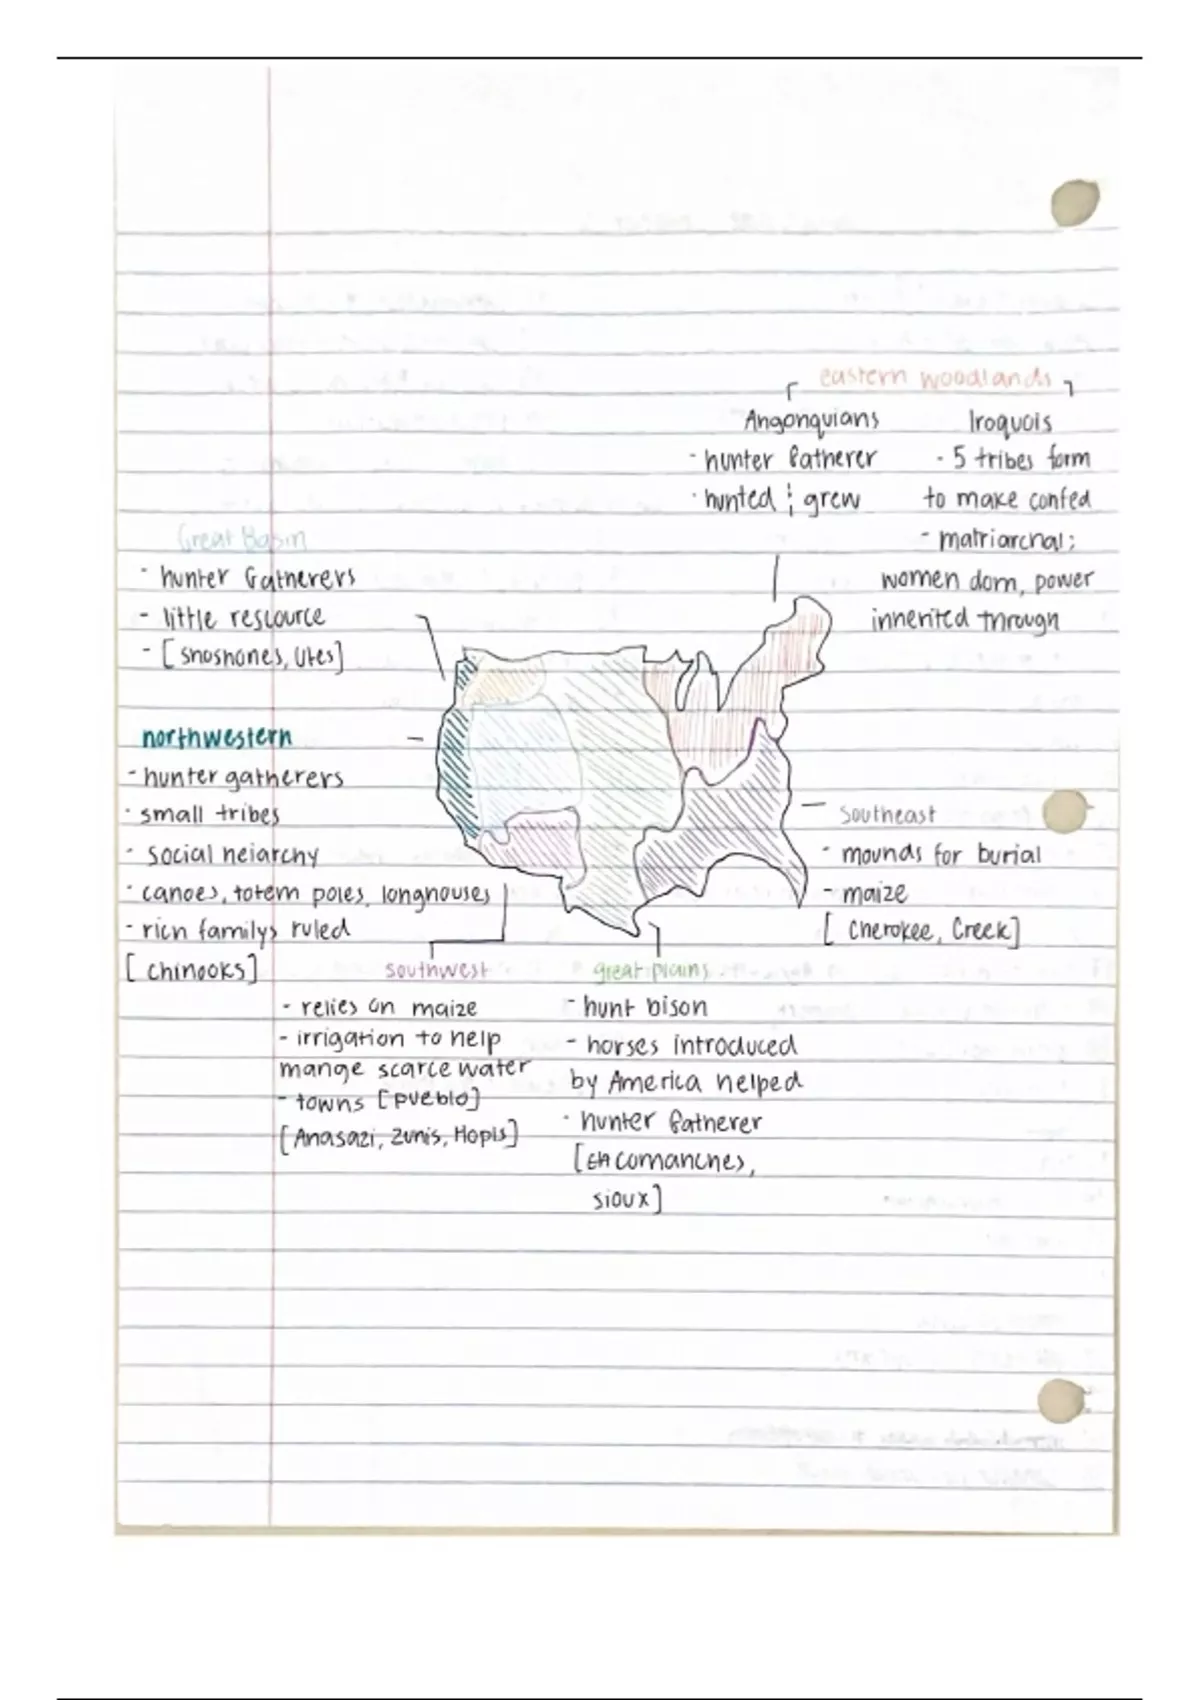 eastern woodlands
Angonquians
· hunter Gatherer
· hunted & grew
Iroquois
· 5 tribes form
to make confed
- matriarchal;
women dom, power
inherited through
Great Basin
· hunter Gatherers
- little rescource
- [shoshones, Utes]
northwestern
- hunter gatherers
· small tribes
· social heiarchy
· canoes, totem poles, longhouses
- rich familys ruled
[chinooks]
southeast
- mounds for burial
- maize
[Cherokee, Creek]
southwest
- relies on maize
- irrigation to help
mange scarce water
- towns [pueblo]
[Anasazi, Zunis, Hopis]
great plains
- hunt bison
- horses introduced
by America helped
· hunter Gatherer
[comanches,
sioux]